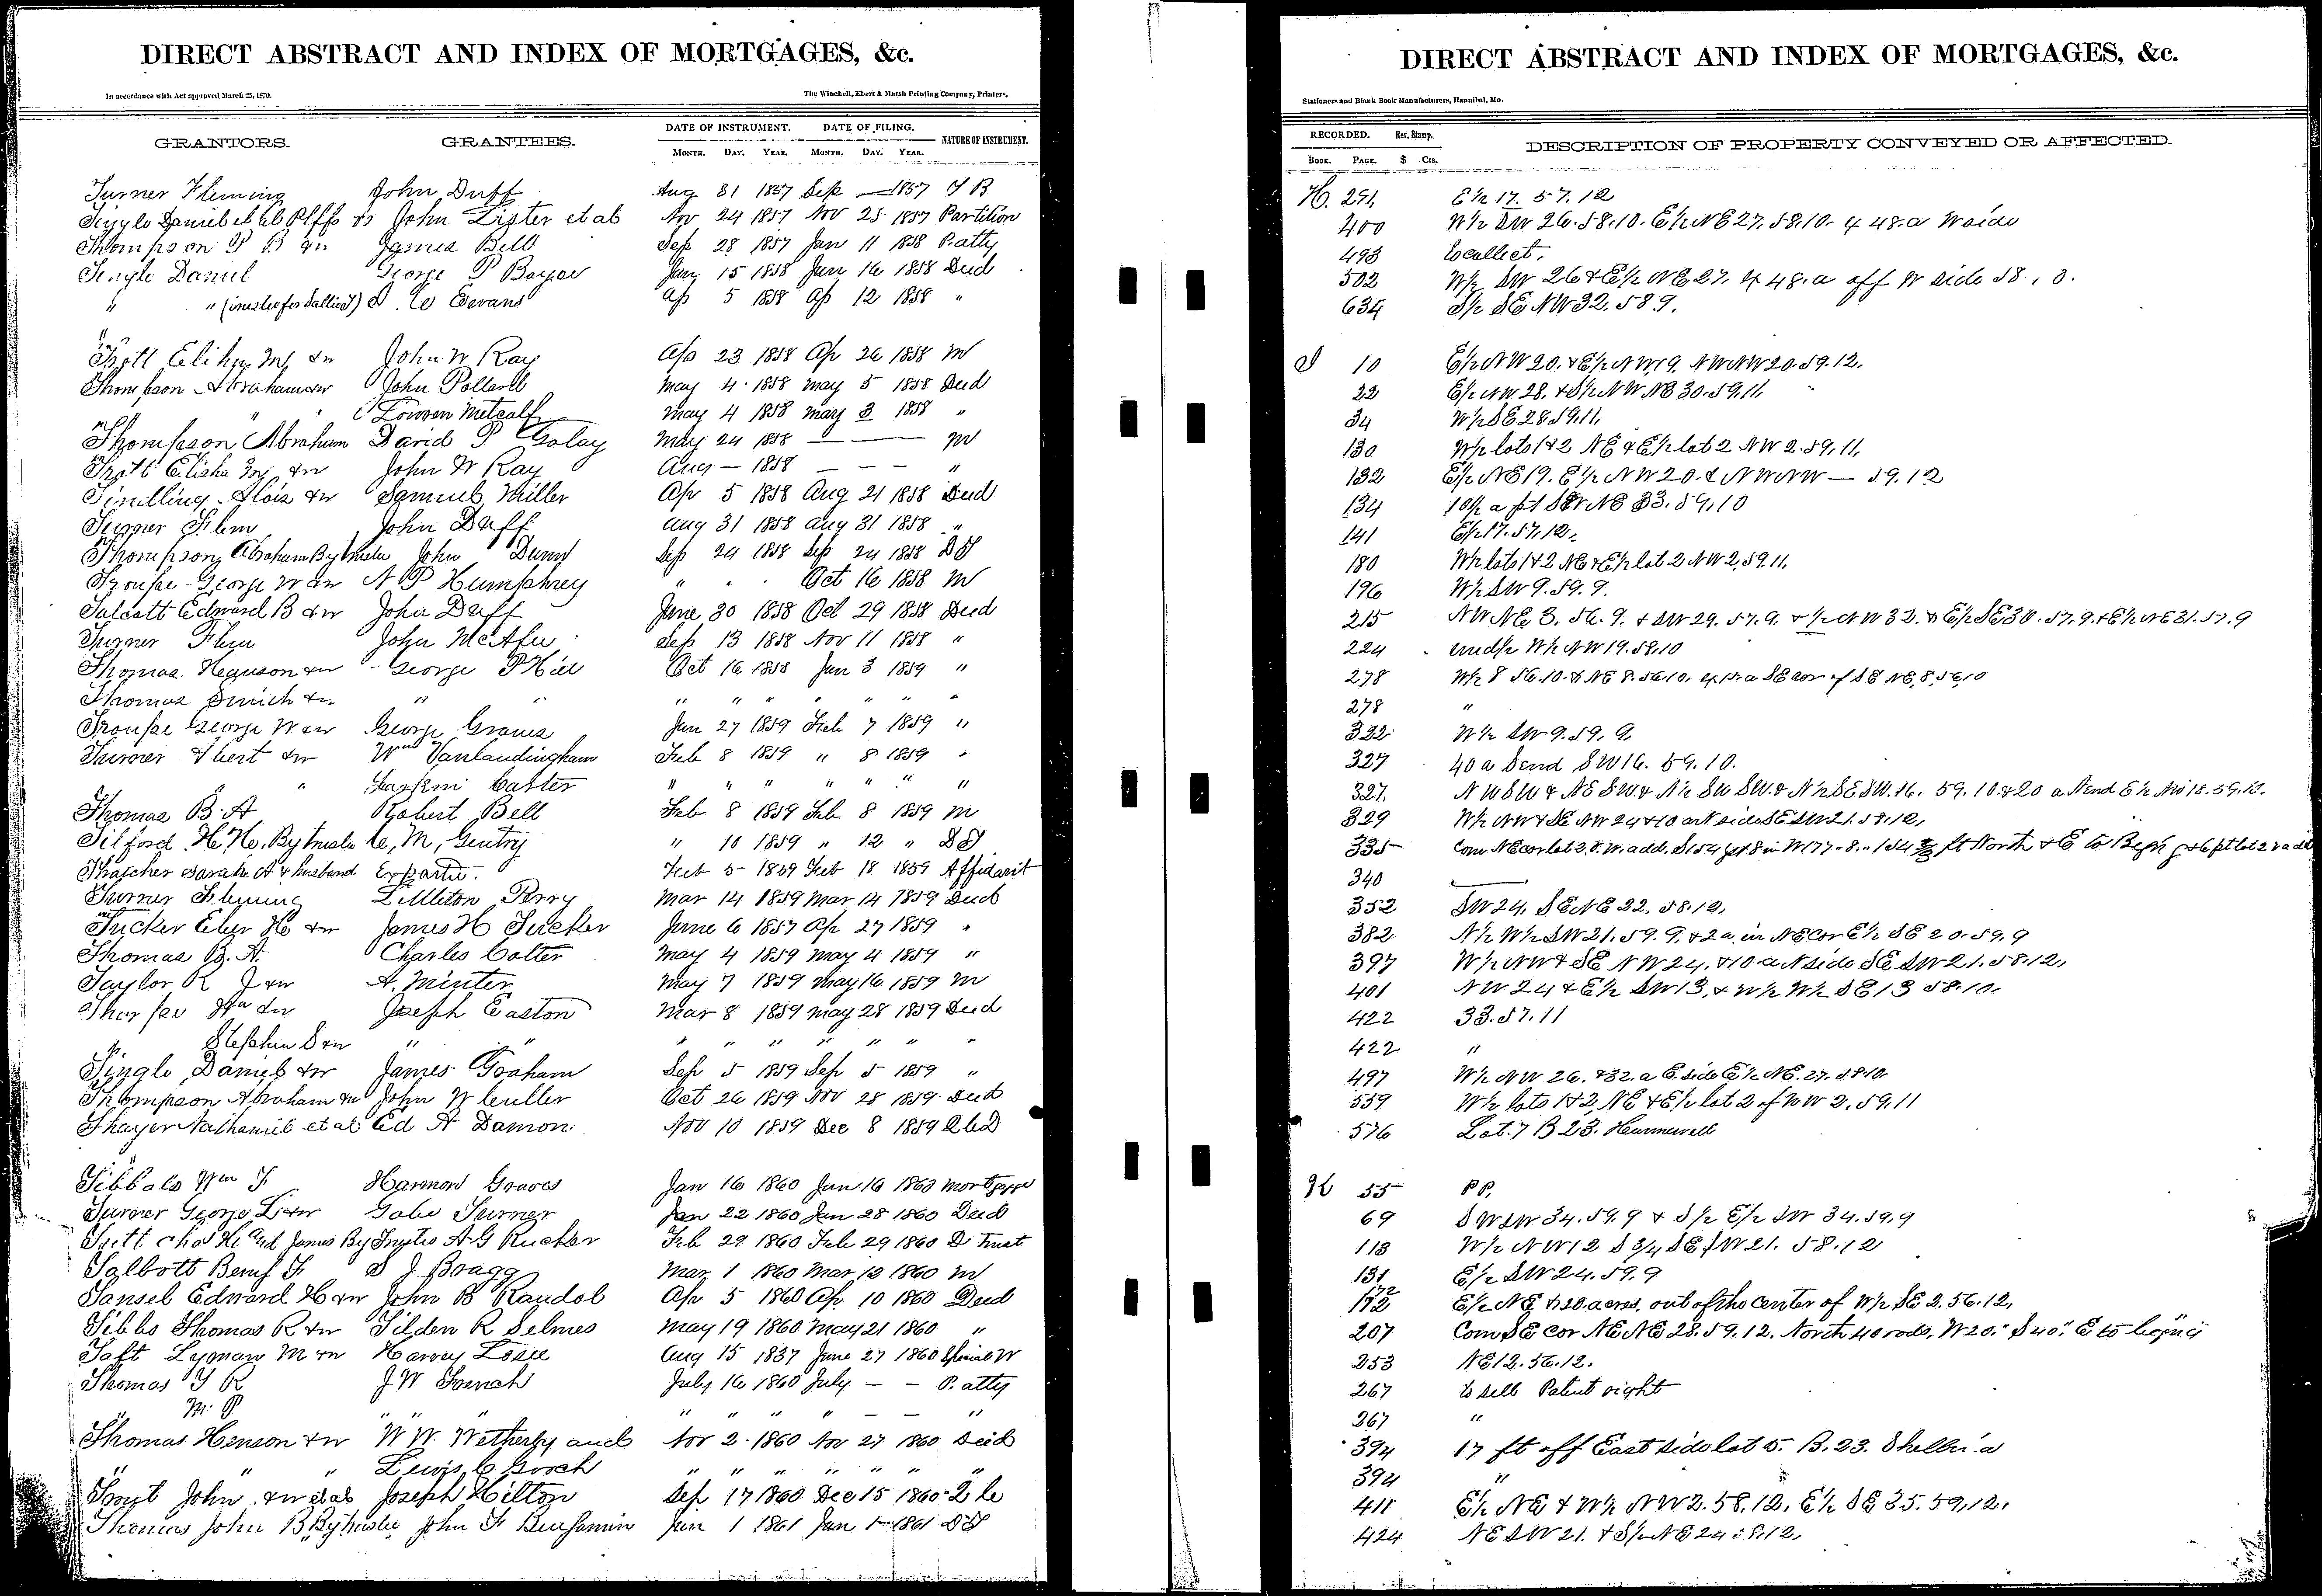 DIRECT ABSTRACT AND INDEX OF MORTGAGES, &c.
In accordance with Act approved March 25, 1870.
The Winchell, Ebert & Marsh Printing Company, Printers,
GRANTORS. GRANTEES. DATE OF INSTRUMENT. DATE OF FILING. NATURE OF INSTRUMENT.
MONTH. DAY. YEAR. MONTH. DAY. YEAR.
Turner Fleming John Duff Aug 31 1857 Sep — 1857 T B
Daniel et al Plffs vs John Lister et al Nov 24 1857 Nov 25 1857 Partition
Thompson P B James Bell Sep 28 1857 Jan 11 1858 P. atty
Tingle Daniel George P Boyer Jan 15 1858 Jan 16 1858 Deed
" " (trustee for ) Evans Ap 5 1858 Ap 12 1858 "
Trott Elihu &w John W Ray Apr 23 1858 Ap 26 1858 M
Thompson Abraham &w John Pollard May 4 1858 May 5 1858 Deed
" " Metcalf May 4 1858 May 3 1858 "
Thompson Abraham David P Golay May 24 1858 — — M
Trott Elisha &w John W Ray Aug — 1858 — — — "
Tindling Alois &w Samuel Miller Ap 5 1858 Aug 21 1858 Deed
Turner Flem John Duff Aug 31 1858 Aug 31 1858 "
Thompson Abraham By trustee John Dunn Sep 24 1858 Sep 24 1858 DT
George W &w A P Humphrey " " " Oct 16 1858 M
Talcott Edward B &w John Duff June 30 1858 Oct 29 1858 Deed
Turner Flem John McAfee Sep 13 1858 Nov 11 1858 "
Thomas &w George P Hill Oct 16 1858 Jan 3 1859 "
Thomas &w " " " " " " " " "
George W &w George Graves Jan 27 1859 Feb 7 1859 "
Turner Albert &w Wm Vanlandingham Feb 8 1859 " 8 1859 "
" " " Caster " " " " " " "
Thomas B. A Robert Bell Feb 8 1859 Feb 8 1859 M
Tilford H. H. By trustee C, M, Gentry " 10 1859 " 12 " DT
Thatcher Sarah A & husband Exparte. Feb 5 1859 Feb 18 1859 Affidavit
Turner Fleming Littleton Perry Mar 14 1859 Mar 14 1859 Deed
Tucker Eber H &w James H Tucker June 6 1857 Ap 27 1859 "
Thomas B. A. Charles Cotter May 4 1859 May 4 1859 "
Taylor R J &w A. Minter May 7 1859 May 16 1859 M
Wm &w Joseph Easton Mar 8 1859 May 28 1859 Deed
" Stephen D &w " " " " " " " " "
Tingle Daniel &w James Graham Sep 5 1859 Sep 5 1859 "
Thompson Abraham &w John W Culler Oct 26 1859 Nov 28 1859 Deed
Thayer Nathaniel et al Ed A Damon Nov 10 1859 Dec 8 1859 QCD
Tibbals Wm F Harmon Graves Jan 16 1860 Jan 16 1860 Mortgage
Turner George L &w Gabe Turner Jan 22 1860 Jan 28 1860 Deed
Chas H James By Trustee A G Rucker Feb 29 1860 Feb 29 1860 D Trust
Talbott Benj F D J Bragg Mar 1 1860 Mar 12 1860 M
Tansel Edward H &w John B Randol Ap 5 1860 Ap 10 1860 Deed
Tibbs Thomas R &w Tilden R Selmes May 19 1860 May 21 1860 "
Taft Lyman M &w Harvey Aug 15 1837 June 27 1860 Special W
Thomas T R J W July 16 1860 July — — P. atty
" M. P " " " " " " — — "
Thomas Henson &w W W. Wetherby and Nov 2 1860 Nov 27 1860 Deed
" " " Lewis C Gooch " " " " " " "
Trout John &w et al Joseph Hilton Sep 17 1860 Dec 15 1860 Q C
Thomas John B By trustee John F Benjamin Jan 1 1861 Jan 1 1861 DT
DIRECT ABSTRACT AND INDEX OF MORTGAGES, &c.
Stationers and Blank Book Manufacturers, Hannibal, Mo.
RECORDED. Rev. Stamp. DESCRIPTION OF PROPERTY CONVEYED OR AFFECTED.
BOOK. PAGE. $ Cts.
H. 291, E½ 17. 57. 12
400 W½ SW 26. 58. 10. E½ NE 27. 58. 10. ex 48. a W side
493 to collect.
502 W½ SW 26 & E½ NE 27. ex 48. a off W side 58. 10.
634 S½ SE NW 32. 58 9.
10 E½ NW 20. & E½ NW 19. NW NW 20. 59. 12.
22 E½ NW 28. & S½ NW NE 30. 59. 11.
34 W½ SE 28 59. 11.
130 W½ lots 1 & 2 NE & E½ lot 2 NW 2. 59. 11.
132 E½ NE 19. E½ NW 20. & NW NW — 59. 12
134 10½ a pt NE 33. 59. 10
141 E½ 17. 57. 12.
180 W½ lots 1 & 2 NE & E½ lot 2 NW 2. 59. 11.
196 W½ SW 9. 59. 9.
215 NW NE 3. 56. 9. & SW 29. 57. 9. & ½ NW 32. & E½ SE 30. 57. 9. & E½ NE 31. 57. 9
224 und½ W½ NW 19. 58. 10
278 W½ 8 56. 10. & NE 8. 56. 10. ex 15. a SE cor of SE NE, 8, 56, 10
278 "
322 W½ SW 9. 59. 9.
327 40 a S end SW 16. 59. 10.
327. NW SW & NE SW. & N½ SW SW. & N½ SE SW. 16. 59. 10. & 20 a N end E½ NW 18. 59. 10.
329 W½ NW & SE NW 24 & 10 a N side SE SW 21. 58. 12.
335 Com NE cor lot 2. add. S 154 ft North & E to
340 ———
352 SW 24. SE NE 22. 58. 12.
382 N½ W½ SW 21. 59. 9. & 2 a. in NE Cor E½ SE 20. 59. 9
397 W½ NW & SE NW 24. & 10 a N side SE SW 21. 58. 12.
401 NW 24 & E½ SW 13. & W½ W½ SE 13 58. 10.
422 33. 57. 11
422 "
497 W½ NW 26. & 32. a E. side E½ NE. 27. 58 10.
559 W½ lots 1 & 2, NE & E½ lot 2 of NW 2. 59. 11
576 Lot. 7 B 23. Hunnewell
K 55 P P.
69 SW SW 34. 59. 9 & S½ E½ SW 34. 59. 9
113 W½ NW 12 S ¾ SE SW 21. 58. 12
131 E½ SW 24. 59. 9
172 E½ NE & 20. acres, out of the center of W½ SE 2. 56. 12,
207 Com SE cor NE NE 28. 59. 12. North 40 rods, W 20." S 40." E to
253 NE 12. 56. 12.
267 to sell Patent right
267 "
394 17 ft off East side lot 5. B. 23. Shelbina
394 "
411 E½ NE & W½ NW 2. 58. 12, E½ SE 35. 59. 12.
424 NE SW 21. & S½ NE 24 58. 12,